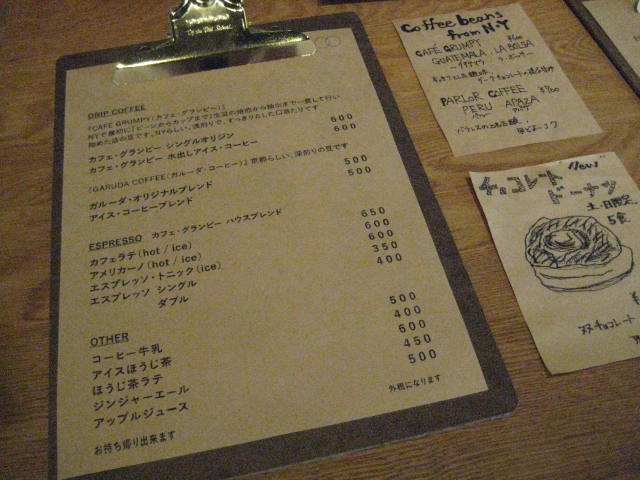 DRIP COFFEE
『CAFE GRUMPY(カフェ・グランピー)』
NYで最初に『ビーンからカップまで』生豆の焙煎から抽出まで一貫して行い
始めた店の豆です。NYらしい、浅煎りで、すっきりとした口当たりです
カフェ・グランピー シングルオリジン 600
カフェ・グランピー 水出しアイス・コーヒー 600
『GARUDA COFFEE(ガルーダ・コーヒー)』京都らしい、深煎りの豆です
ガルーダ・オリジナルブレンド 500
アイス・コーヒーブレンド 500
ESPRESSO カフェ・グランピー ハウスブレンド
カフェラテ(hot / ice) 650
アメリカーノ(hot / ice) 600
エスプレッソ・トニック(ice) 600
エスプレッソ シングル 350
ダブル 400
OTHER
コーヒー牛乳 500
アイスほうじ茶 400
ほうじ茶ラテ 600
ジンジャーエール 450
アップルジュース 500
外税になります
お持ち帰り出来ます
Coffee beans
from N.Y
CAFÉ GRUMPY ¥600
GUATEMALA . LA BOLSA
PARLOR COFFEE ¥700
PERU APAZA
New!
チョコレート
ドーナツ
土・日限定
5食
¥
チョコレート